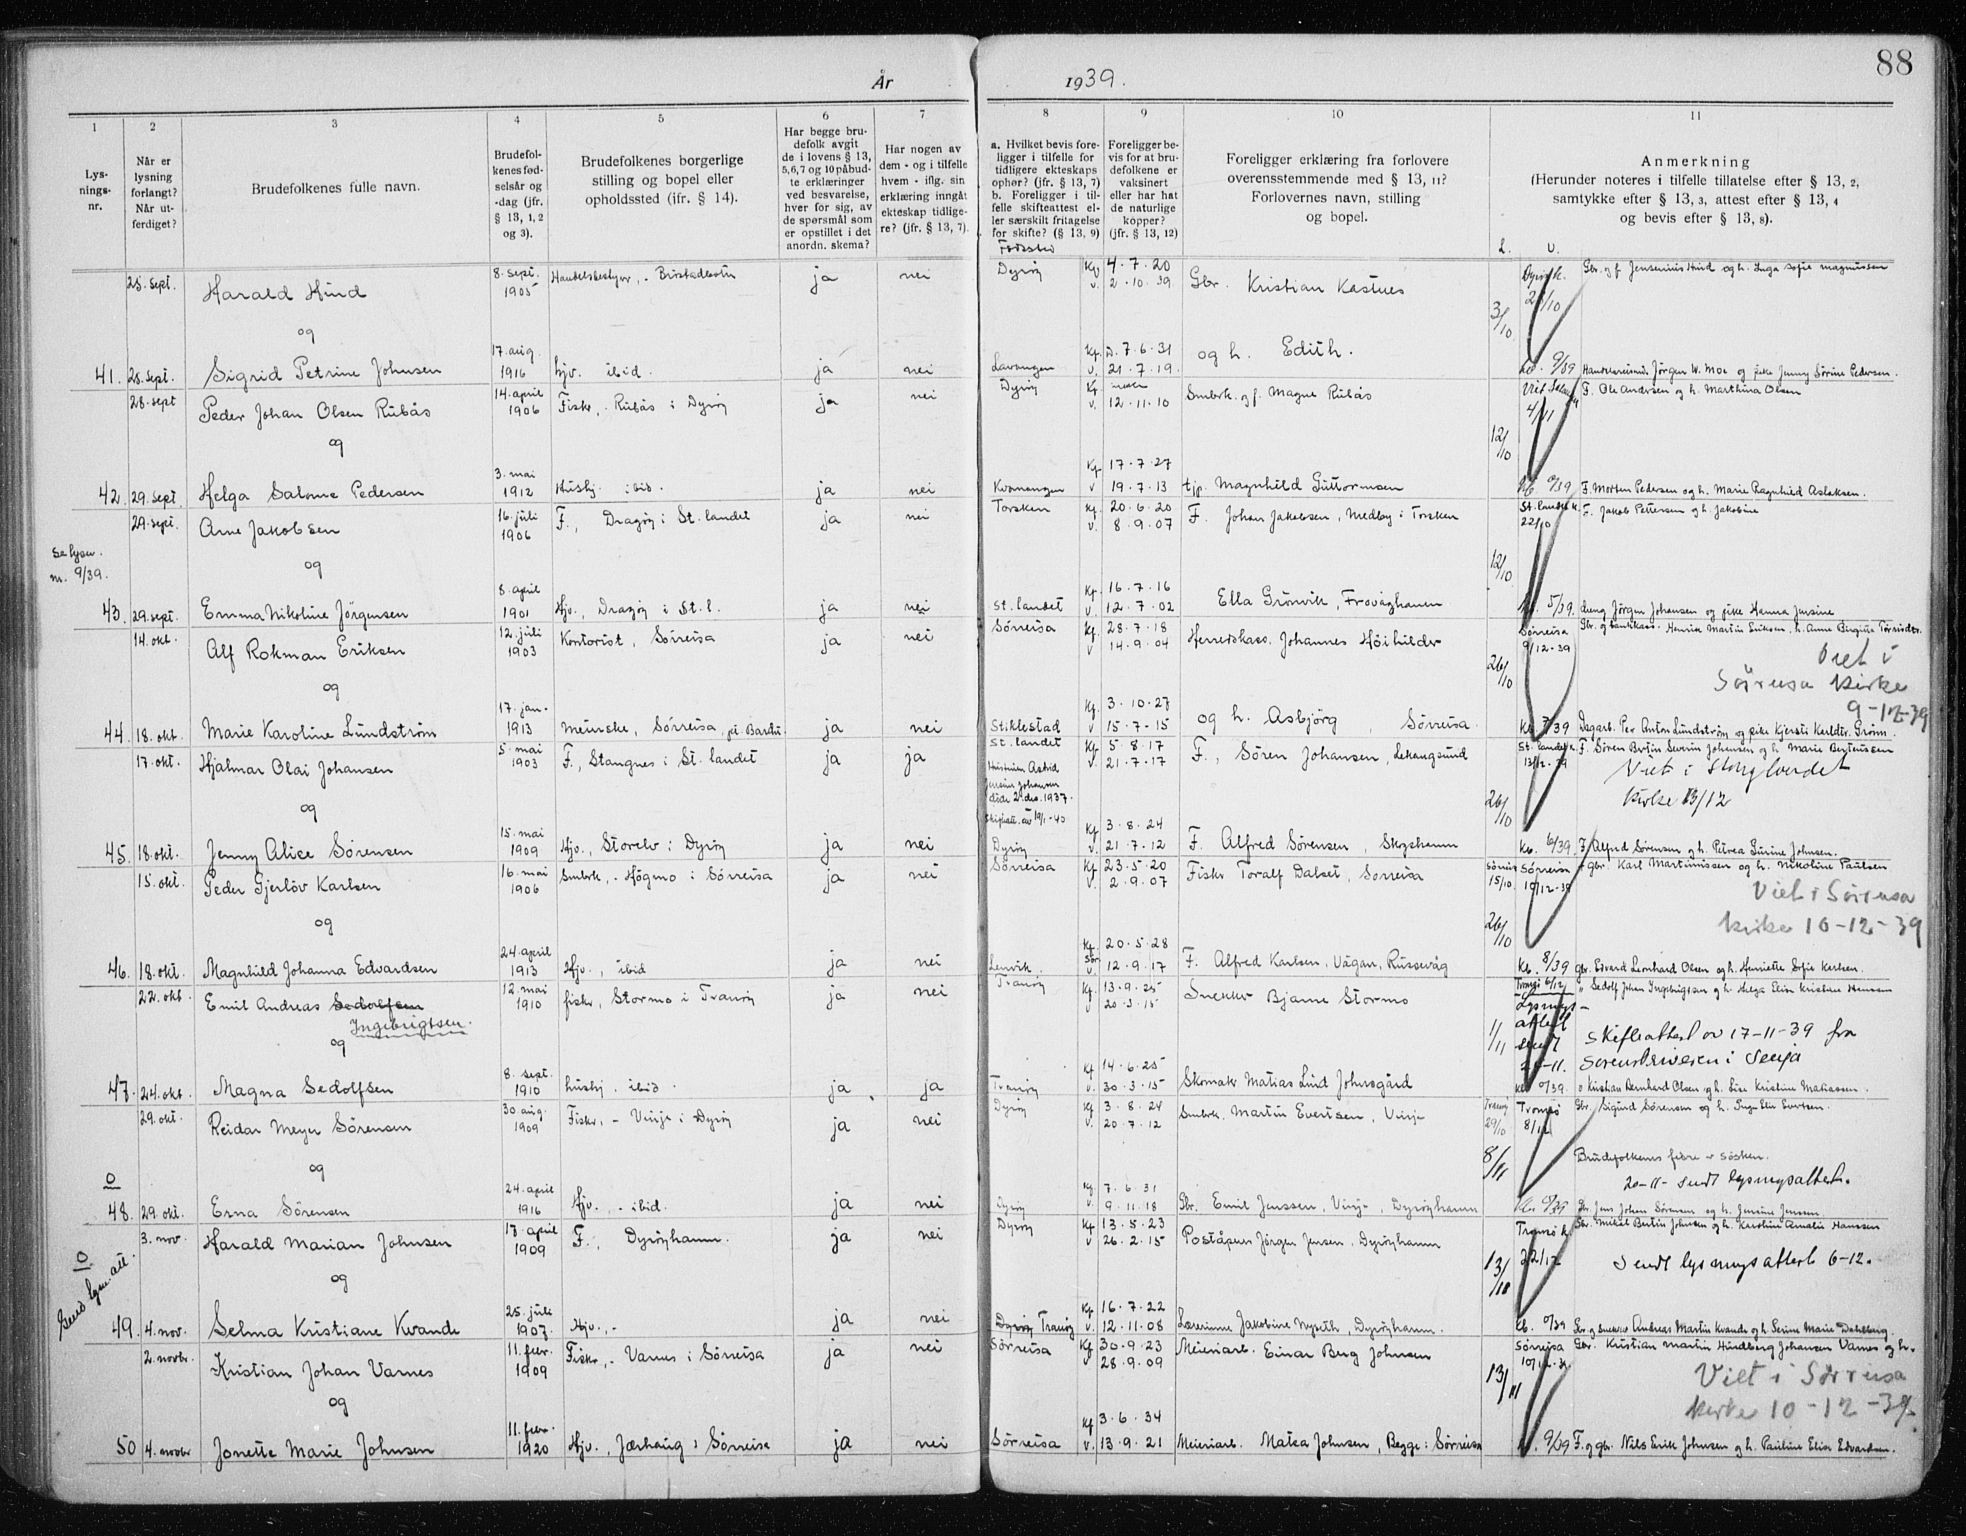 88
År 1939.
1 2 3 4 5 6 7 8 9 10 11
Lys-
nings-
nr.
Når er
lysning
forlangt?
Når ut-
ferdiget?
Brudefolkenes fulle navn.
Brudefol-
kenes fød-
selsår og
-dag (jfr.
§ 13, 1, 2
og 3).
Brudefolkenes borgerlige
stilling og bopel eller
opholdssted (ifr. § 14).
Har begge bru-
defolk avgit
de i lovens § 13,
5,6,7 og 10 påbud-
te erklæringer
ved besvarelse,
hver for sig, av
de spørsmål som
er opstillet i det
anordn. skema?
Har nogen av
dem - og i tilfelle
hvem - iflg. sin
erklæring inngåt
ekteskap tidlige-
re? (jfr. § 13, 7).
a. Hvilket bevis fore-
ligger i tilfelle for
tidligere ekteskaps
ophør? (jfr. § 13, 7)
b. Foreligger i til-
felle skifteattest el-
ler særskilt fritagelse
for skifte? (§ 13, 9)
Fødested
Foreligger be-
vis for at bru-
defolkene er
vaksinert
eller har hat
de naturlige
kopper?
(jfr. § 13, 12)
Foreligger erklæring fra forlovere
overensstemmende med § 13, 11?
Forlovernes navn, stilling
og bopel.
Anmerkning
(Herunder noteres i tilfelle tillatelse efter § 13, 2,
samtykke efter § 13, 3, attest efter § 13, 4
og bevis efter § 13, 8).
L. V.
25. sept. Harald Hind 8. sept. 1905 Handelsbestyrer, - Brøstadbotn ja nei Dyrøy Kf 4.7.20 v. 2.10.39 Gbr. Kristian Kastnes 3/10 Dyrøy k. 28/10 Gbr. og f. Jensenius Hind og h. Inga Sofie Magnussen
og
41. 25. sept. Sigrid Petrine Johnsen 17. aug. 1916 hjv. ibid. ja nei Lavangen Kf. 7.6.31 v. 21.7.19. og h. Edith. 9/39 Handelsreisende Jørgen W. Moe og pike Jenny Sørine Pedersen.
28. sept Peder Johan Olsen Rubås 14. april 1906 Fisker, - Rubås i Dyrøy ja nei Dyrøy Kf v. 12.11.10 Smbrk. og f. Magne Rubås 12/10 4/11 F. Ole Andersen og h. Marthina Olsen
og
42. 29. sept Helga Salome Pedersen 3. mai 1912 Hushj. ibid. ja nei Kvænangen Kf 17.7.27 v 19.7.13 tjp. Magnhild Guttormsen F. Morten Pedersen og h. Marie Ragnhild Aslaksen.
29. sept. Arne Jakobsen 16. juli 1906 F., Dragøy i St. landet ja nei Torsken Kf. 20.6.20 v. 8.9.07 F. Johan Jakobsen, Medby i Torsken 12/10 St. landet k. 22/10 F. Jakob Pettersen og h. Jakobine
Se lysn.
nr. 9/39.
og
43. 29. sept. Emma Nikoline Jörgensen 8. april 1901 Hjv., Dragøy i St. l. ja nei St. landet Kf. 16.7.16 v. 12.7.02 Ella Grönvik, Frovåghamn 5/39. Jørgen Johansen og pike Hanna Jensine
14. okt. Alf Rokman Eriksen 12. juli 1903 Kontorist, Sørreisa ja nei Sørreisa Kf. 28.7.18 v 14.9.04 Herredskass. Johannes Høihilder 26/10 Sørreisa 9/12-39 Gbr. og bankkass. Henrik Martin Eriksen, h. Anne Birgitte
Viet i
Sørreisa kirke
9-12-39
og
44. 18. okt. Marie Karoline Lundström 17. jan. 1913 Meierske, Sørreisa, på Bardu ja nei Stiklestad Kf. 3.10.27 v 15.7.15 og h. Asbjörg Sørreisa. Kb. 7/39 Dagarb. Per Anton Lundström og pike Kjersti Grönn.
17. okt. Hjalmar Olai Johansen 5. mai 1903 F., Stangnes i St. landet ja ja St. landet Kf 5.8.17 v. 21.7.17 F., Sören Johansen, Lekangsund 26/10 St. landet k. 13/12-39 F. Sören Bertin Severin Johansen og h. Marie Berteussen
Hustruen Astrid
Johansen
døde 2. des. 1937.
Skifteatt. av 19/1-40
Viet i Stonglandet
kirke 13/12
og
45. 18. okt. Jenny Alice Sörensen 15. mai 1909 Hjv., Storelv i Dyröy ja nei Dyrøy Kf 3.8.24 v. 21.7.12 F. Alfred Sørensen, Skogshamn Kb. 6/39. F. Alfred Sørensen og h. Petrea Gurine Johnsen.
15. okt. Peder Gjerlöv Karlsen 16. mai 1906 Smbrk, - Högmo i Sørreisa ja nei Sørreisa Kf 23.5.20 v. 2.9.07 Fisker Toralf Dalset, Sørreisa Sørreisa 15/10 26/10 Sørreisa 10/12-39 gbr. Karl Martinussen og h. Nikoline Paulsen
Viet i Sörreisa
kirke 10-12-39
og
46. 18. okt. Magnhild Johanna Edvardsen 24. april 1913 Hjv., ibid ja nei Lenvik. Kf. 20.5.28 v 12.9.17 F. Alfred Karlsen, Vågan, Russevåg Kb. 8/39 gbr. Edvard Leonhard Olsen og h. Henriette Sofie Karlsen.
22. okt. Emil Andreas Sedolfsen Ingebrigtsen. 12. mai 1910 fisker, Stormo i Tranöy ja nei Tranøy Kf. 13.9.25 v. 20.3.15 Snekker Bjarne Stormo 1/11 Tromsö 6/12 " Sedolf Johan Ingebrigtsen og h. Helga Elise Kristine Hanssen
Lysnings-
attest
sendt
20-11.
Skifteattest av 17-11-39 fra
Sorenskriveren i Senja
og
47. 24. okt Magna Sedolfsen 8. sept. 1910 hushj. ibid. ja ja Tranøy Kf 14.6.25 v. 30.3.15 Skomaker Matias Lind Johnsgård 0/39. Kristian Bernhard Olsen og h. Lise Kristine Matiassen.
29. okt. Reidar Meyer Sörensen 30. aug. 1909 Fisker, - Vinje i Dyröy ja nei Dyrøy Kf 3.8.24 v. 20.7.12 Smbrk. Martin Evertsen, Vinje Tranøy 29/10 8/11 Tromsö 8/12 Gbr. Sigurd Sørensen og h. Inga Elin Evertsen.
Brudefolkenes fedre er søsken.
20-11- sendt lysningsattest.
og
0
48. 29. okt. Erna Sörensen 24. april 1916 Hjv. - ibid. ja nei Dyrøy Kf 7.6.31 v. 9.11.18 Gbr. Emil Jenssen, Vinje, Dyröyhamn 0/39 Gbr. Jens Johan Sørensen og h. Jensine Jenssen.
3. nov. Harald Marian Johnsen 17. april 1909 F., Dyröyhamn. ja nei Dyrøy Kf 13.5.23 v 26.2.15 Poståpner Jörgen Jensen, Dyröyhamn 13/11 Tromsö k. 22/12 Gbr. Mikal Bertin Johnsen og h. Karoline Amalie Hanssen
Sendt lysningsattest 6-12.
0
Send lysn. att.
og
49. 4. nov. Selma Kristiane Kvande 25. juli 1907. Hjv., - ja nei Dyrøy Tranøy Kf 16.7.22 v. 12.11.08 Lærerinne Jakobine Nyseth, Dyröyhamn. Kb. 0/39 Gbr. og snekker Andreas Martin Kvande og h. Serine Marie Dahlberg.
2. novbr. Kristian Johan Varnes 11. febr. 1909 Fisker, - Varnes i Sørreisa ja nei Sørreisa Kf 30.9.23 v 28.9.09 Meieriarb. Einar Berg Johnsen 13/11 Sørreisa 10/12-39 Gbr. Kristian Martin Hundberg Johansen Varnes og h.
Viet i Sörreisa
kirke 10-12-39.
og
50 4. novbr Jonette Marie Johnsen 11. febr. 1920 Hjv., Jærhaug i Sørreisa ja nei Sørreisa Kf 3.6.34 v. 13.9.21 Meieriarb. Matea Johnsen, Begge i Sørreisa 9/39 F. og gbr. Nils Erik Johnsen og h. Pauline Elise Edvardsen.